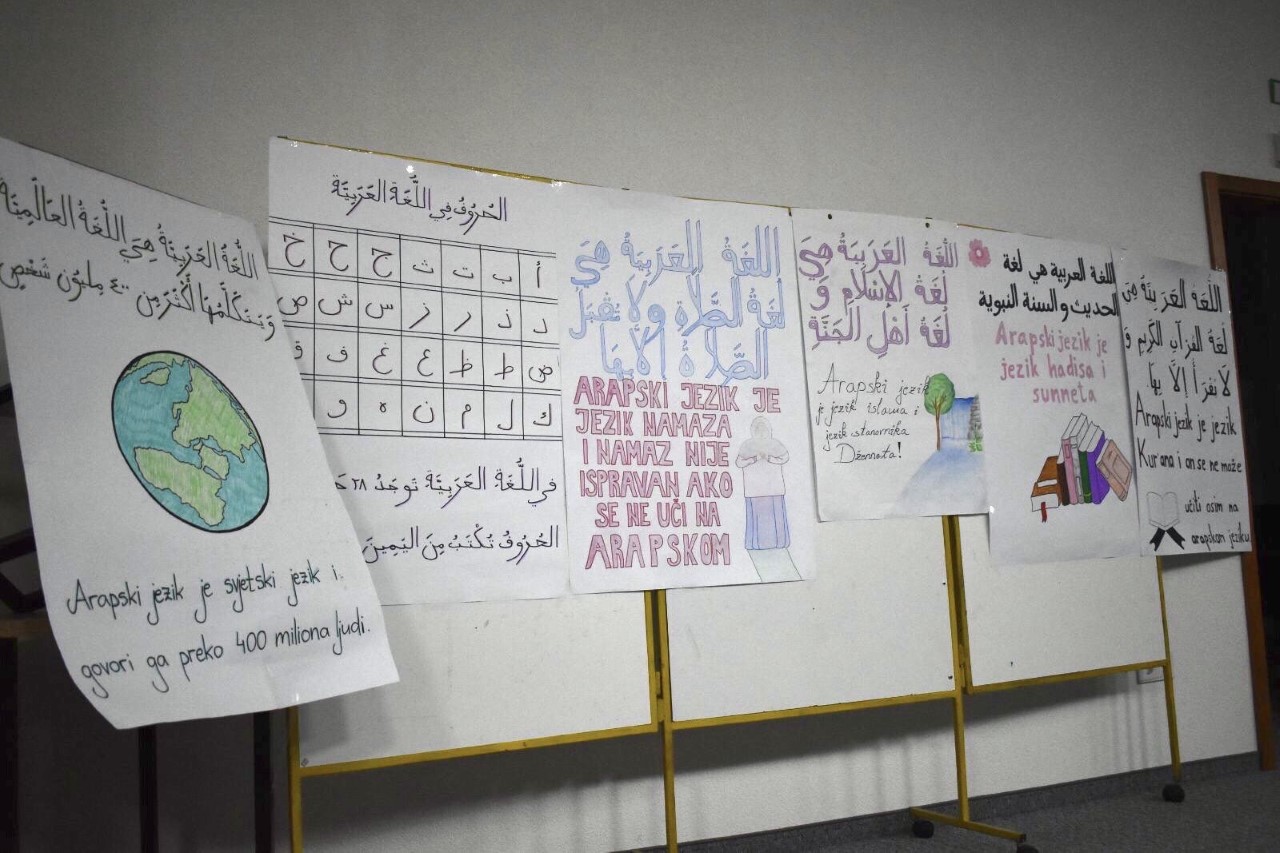 اللُّغَةُ العَرَبِيَّةُ هِيَ اللُّغَةُ العَالَمِيَّة
وَيَتَكَلَّمُهَا أَكْثَرُ مِن ٤٠٠ مِليُون شَخْصٍ
Arapski jezik je svjetski jezik i
govori ga preko 400 miliona ljudi.
الحُرُوفُ فِي اللُّغَةِ العَرَبِيَّة
أ ب ت ث ج ح خ
د ذ ر ز س ش ص
ض ط ظ ع غ ف ق
ك ل م ن ه و
فِي اللُّغَةِ العَرَبِيَّة تُوجَدُ ٢٨
الحُرُوفُ تُكْتَبُ مِنَ اليَمِينَ
اللُّغَةُ العَرَبِيَّةُ هِيَ
لُغَةُ الصَّلَاةِ وَلَا تُقْبَلُ
الصَّلَاةُ إِلَّا بِهَا
ARAPSKI JEZIK JE
JEZIK NAMAZA
I NAMAZ NIJE
ISPRAVAN AKO
SE NE UČI NA
ARAPSKOM
اللُّغَةُ العَرَبِيَةُ هِيَ
لُغَةُ الإِسْلَامِ وَ
لُغَةُ أَهْلِ الجَنَّةِ
Arapski jezik
je jezik islama i
jezik stanovnika
Dženneta!
اللغة العربية هي لغة
الحديث و السنة النبوية
Arapski jezik je
jezik hadisa i
sunneta
اللُّغَة العَرَبِيَّة هِيَ
لُغَة القُرْآنِ الكَرِيمِ وَ
لَا نَقْرَأُ إِلَّا بِهَا.
Arapski jezik je jezik
Kur'ana i on se ne može
učiti osim na
arapskom jeziku